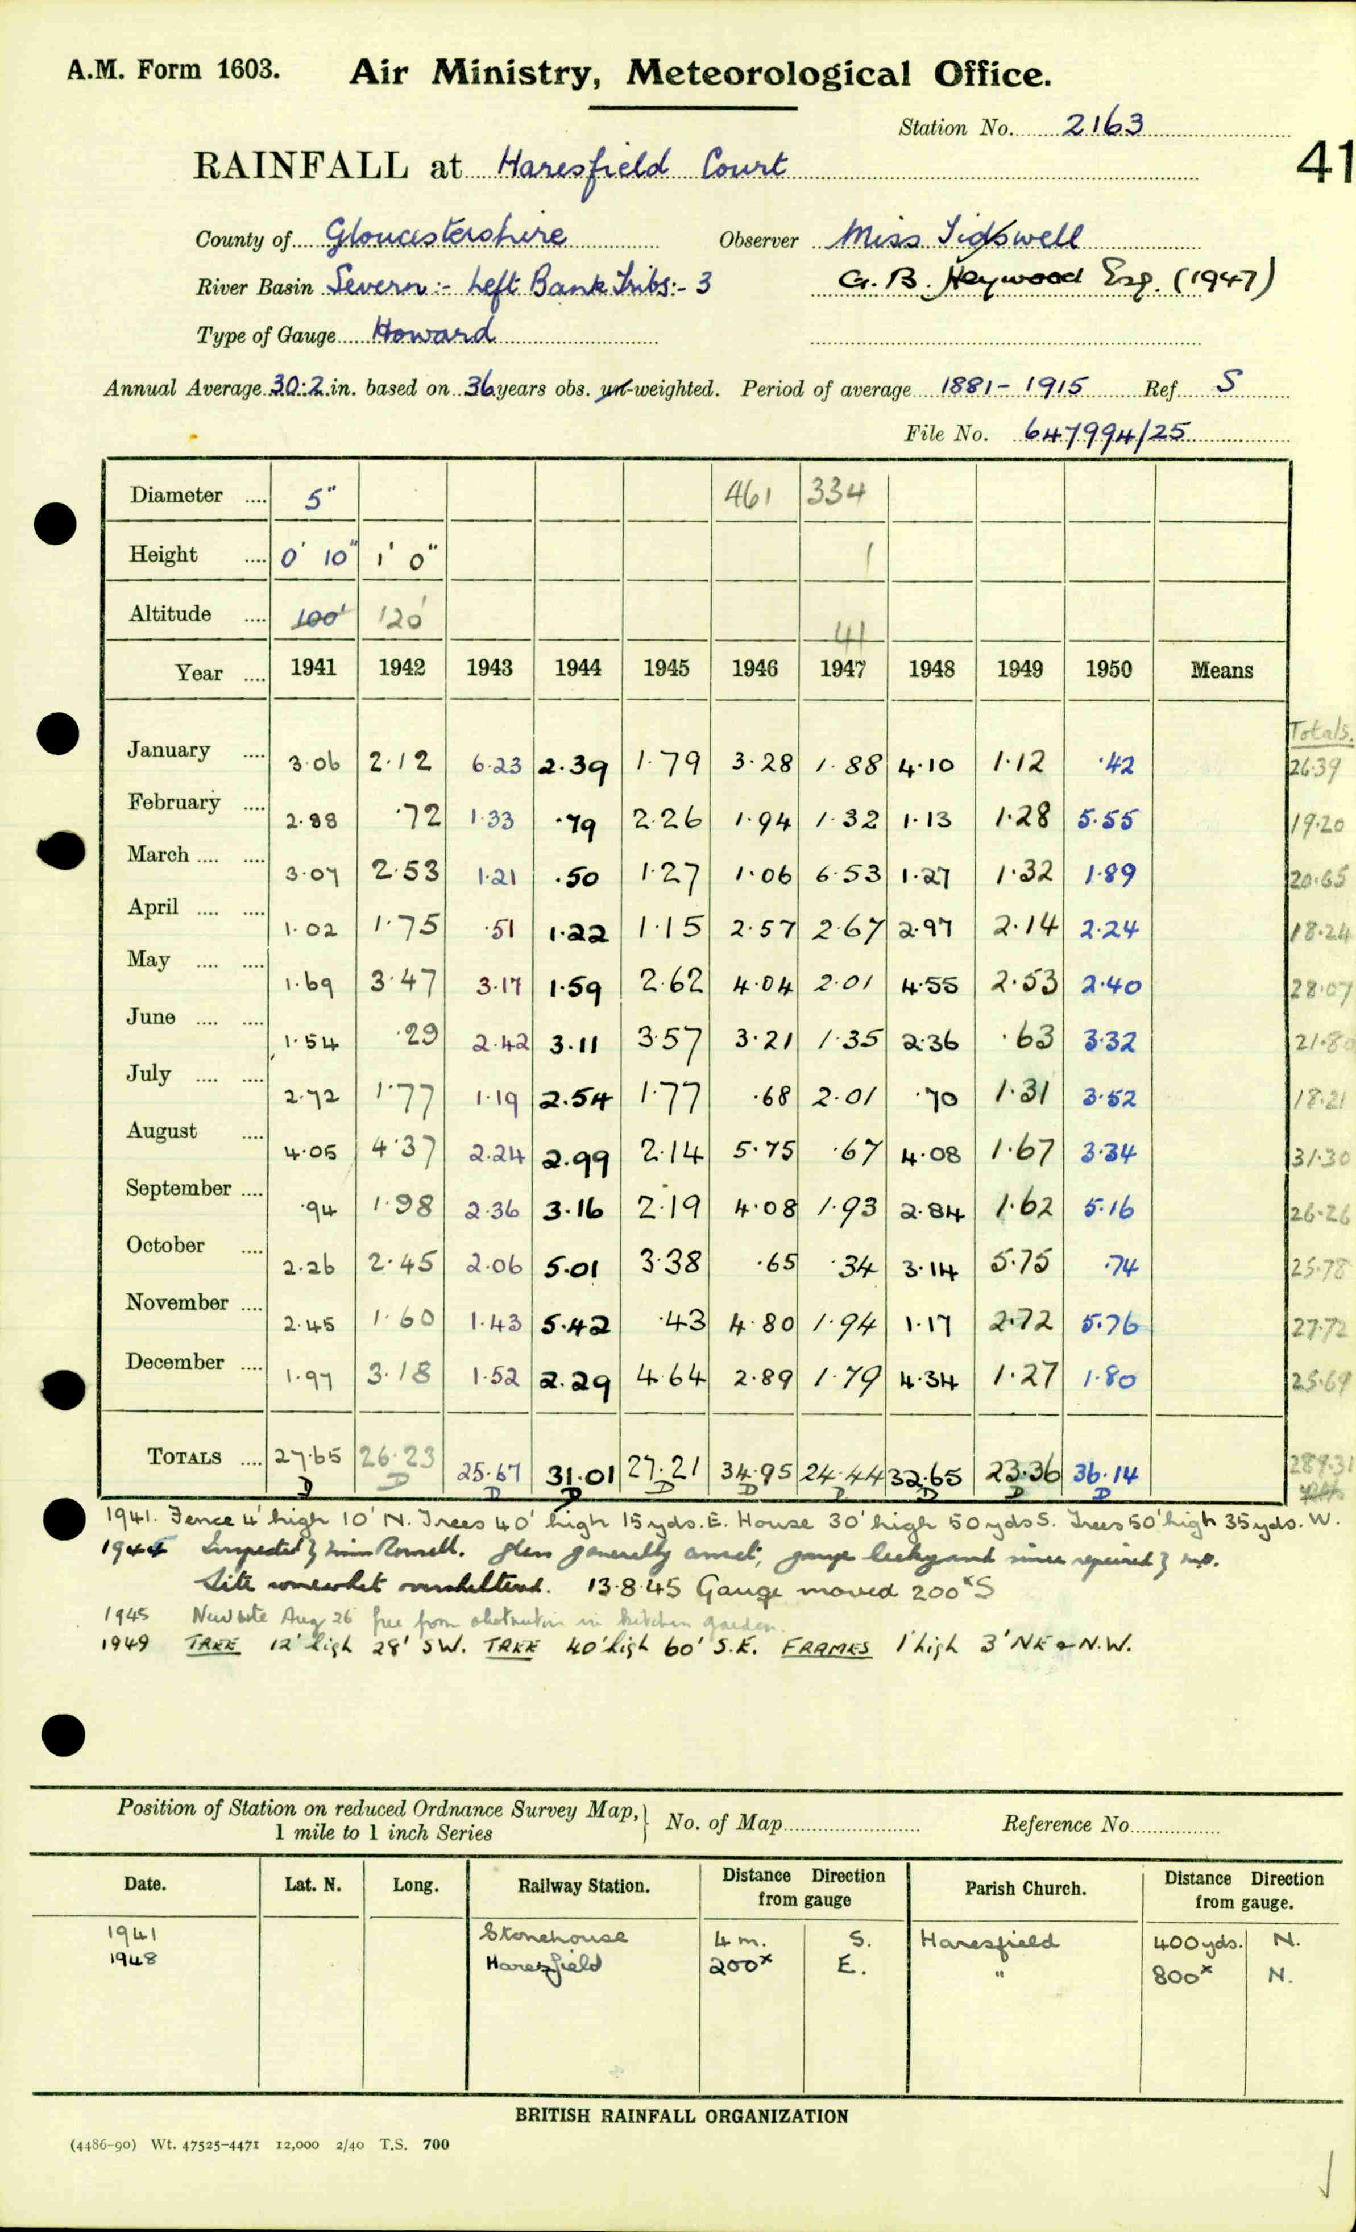 A.M. Form 1603. Air Ministry, Meteorological Office.
Station No. 2163
41
RAINFALL at Haresfield Court
County of Gloucestershire Observer Miss Tidswell
River Basin Severn:- Left Bank Tribs:- 3 G. B. Heywood Esq. (1947)
Type of Gauge Howard
Annual Average 30.2 in. based on 36 years obs. un-weighted. Period of average 1881-1915 Ref S
File No. 647994/25
Diameter 5" 461 334
Height 0' 10" 1' 0" 1
Altitude 100' 120' 41
Year 1941 1942 1943 1944 1945 1946 1947 1948 1949 1950 Means
Totals.
January 3.06 2.12 6.23 2.39 1.79 3.28 1.88 4.10 1.12 .42 26.39
February 2.88 .72 1.33 .79 2.26 1.94 1.32 1.13 1.28 5.55 19.20
March 3.07 2.53 1.21 .50 1.27 1.06 6.53 1.27 1.32 1.89 20.65
April 1.02 1.75 .51 1.22 1.15 2.57 2.67 2.97 2.14 2.24 18.24
May 1.69 3.47 3.17 1.59 2.62 4.04 2.01 4.55 2.53 2.40 28.07
June 1.54 .29 2.42 3.11 3.57 3.21 1.35 2.36 .63 3.32 21.80
July 2.72 1.77 1.19 2.54 1.77 .68 2.01 .70 1.31 3.52 18.21
August 4.05 4.37 2.24 2.99 2.14 5.75 .67 4.08 1.67 3.34 31.30
September .94 1.98 2.36 3.16 2.19 4.08 1.93 2.84 1.62 5.16 26.26
October 2.26 2.45 2.06 5.01 3.38 .65 .34 3.14 5.75 .74 25.78
November 2.45 1.60 1.43 5.42 .43 4.80 1.94 1.17 2.72 5.76 27.72
December 1.97 3.18 1.52 2.29 4.64 2.89 1.79 4.34 1.27 1.80 25.69
TOTALS 27.65 26.23 25.67 31.01 27.21 34.95 24.44 32.65 23.36 36.14 289.31
D D D D D D D D D D
1941. Fence 4' high 10' N. Trees 40' high 15 yds. E. House 30' high 50 yds S. Trees 50' high 35 yds. W.
1944 Inspected by Rowsell. Glass generally unset, gauge leaky and since repaired
Site somewhat oversheltered. 13.8.45 Gauge moved 200x S
1945 New site Aug 26 free from obstruction in kitchen garden.
1949 TREE 12' high 28' SW. TREE 40' high 60' S.E. FRAMES 1' high 3' NE & N.W.
Position of Station on reduced Ordnance Survey Map, 1 mile to 1 inch Series No. of Map Reference No.
Date. Lat. N. Long. Railway Station. Distance Direction from gauge Parish Church. Distance Direction from gauge.
1941 Stonehouse 4 m. S. Haresfield 400 yds. N.
1948 Haresfield 200x E. " 800x N.
BRITISH RAINFALL ORGANIZATION
(4486-90) Wt. 47525-4471 12,000 2/40 T.S. 700